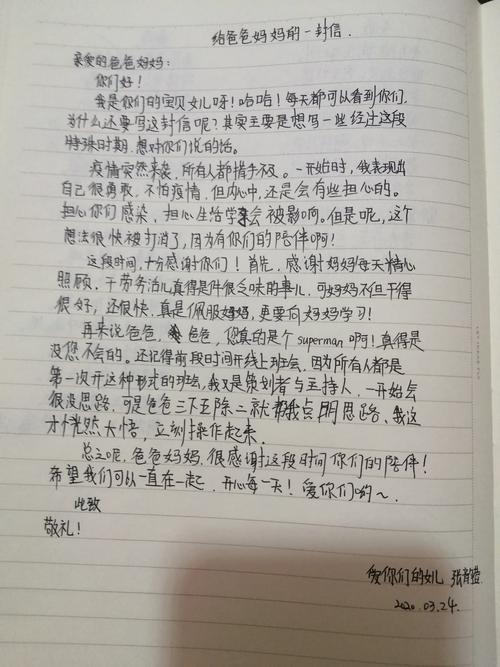 给爸爸妈妈的一封信.
亲爱的爸爸妈妈:
你们好!
我是你们的宝贝女儿呀!哈哈!每天都可以看到你们,
为什么还要写这封信呢?其实主要是想写一些经过这段
特殊时期,想对你们说的话。
疫情突然来袭,所有人都措手不及。一开始时,我表现出
自己很勇敢,不怕疫情,但内心中,还是会有些担心的。
担心你们感染,担心生活学习会被影响。但是呢,这个
想法很快被打消了,因为有你们的陪伴啊!
这段时间,十分感谢你们!首先,感谢妈妈每天精心
照顾,干劳务活儿真得是件很乏味的事儿,可妈妈不但干得
很好,还很快,真是佩服妈妈,更要向妈妈学习!
再来说爸爸,爸爸,您真的是个superman啊!真得是
没您不会的。还记得前段时间开线上班会,因为所有人都是
第一次开这种形式的班会,我又是策划者与主持人,一开始会
很没思路,可是爸爸三下五除二就帮我点明思路、我这
才恍然大悟,立刻操作起来.
总之呢,爸爸妈妈,很感谢这段时间你们的陪伴!
希望我们可以一直在一起,开心每一天!爱你们哟~
此致
敬礼!
爱你们的女儿 张
2020.03.24.